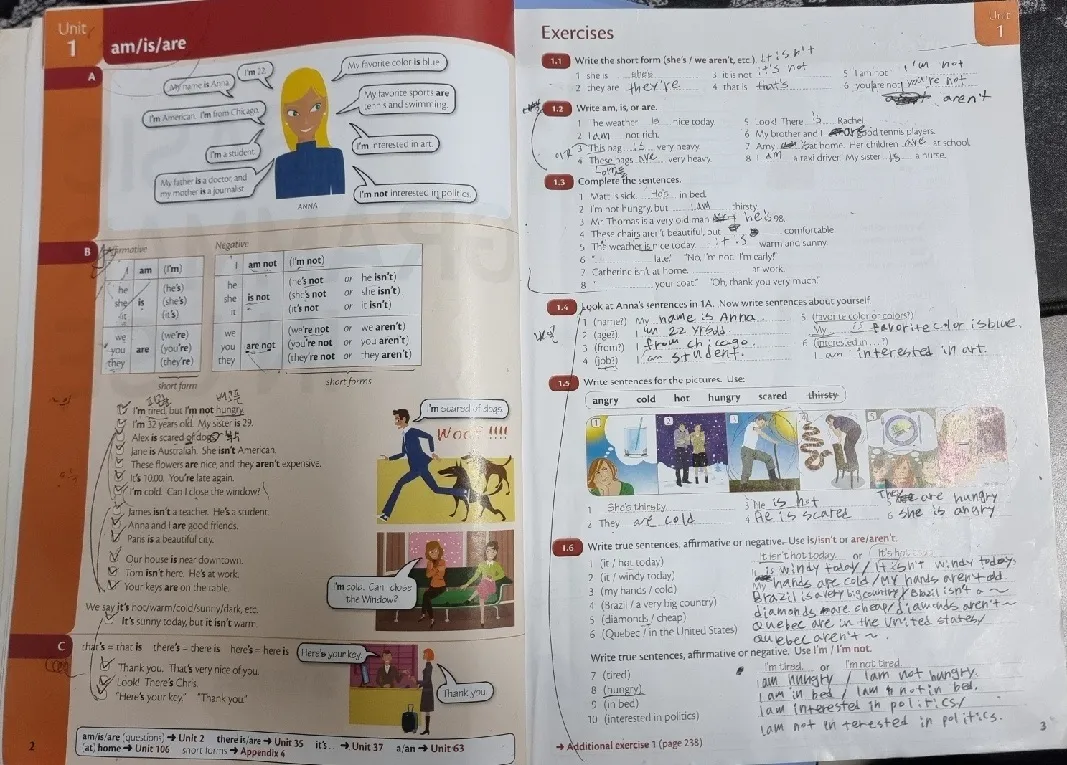 Unit
1
am/is/are
A
My name is Anna.
I'm 22.
I'm American. I'm from Chicago.
I'm a student.
My father is a doctor and
my mother is a journalist.
My favorite color is blue.
My favorite sports are
tennis and swimming.
I'm interested in art.
I'm not interested in politics.
ANNA
B
Affirmative
I am (I'm)
he (he's)
she is (she's)
it (it's)
we (we're)
you are (you're)
they (they're)
short form
Negative
I am not (I'm not)
he (he's not or he isn't)
she is not (she's not or she isn't)
it (it's not or it isn't)
we (we're not or we aren't)
you are not (you're not or you aren't)
they (they're not or they aren't)
short forms
I'm tired, but I'm not hungry.
I'm 32 years old. My sister is 29.
Alex is scared of dogs.
Jane is Australian. She isn't American.
These flowers are nice, and they aren't expensive.
It's 10:00. You're late again.
I'm cold. Can I close the window?
James isn't a teacher. He's a student.
Anna and I are good friends.
Paris is a beautiful city.
Our house is near downtown.
Tom isn't here. He's at work.
Your keys are on the table.
We say it's hot/warm/cold/sunny/dark, etc.
It's sunny today, but it isn't warm.
I'm scared of dogs.
WOOF !!!!
I'm cold. Can I close
the Window?
C
that's = that is there's = there is here's = here is
Thank you. That's very nice of you.
Look! There's Chris.
"Here's your key." "Thank you."
Here's your key.
Thank you.
am/is/are (questions) → Unit 2 there is/are → Unit 35 it's ... → Unit 37 a/an → Unit 63
(at) home → Unit 106 short forms → Appendix 4
2
Unit
1
Exercises
1.1 Write the short form (she's / we aren't, etc.). it isn't
1 she is she's 3 it is not it's not 5 I am not I'm not
2 they are they're 4 that is that's 6 you are not you're not
aren't
1.2 Write am, is, or are.
1 The weather is nice today.
2 I am not rich.
3 This bag is very heavy.
4 These bags are very heavy.
5 Look! There is Rachel.
6 My brother and I are good tennis players.
7 Amy at home. Her children are at school.
8 I am a taxi driver. My sister is a nurse.
1.3 Complete the sentences.
1 Matt is sick. He's in bed.
2 I'm not hungry, but I am thirsty.
3 Mr. Thomas is a very old man. he is 98.
4 These chairs aren't beautiful, but comfortable.
5 The weather is nice today. it is warm and sunny.
6 " late." "No, I'm not. I'm early!"
7 Catherine isn't at home. at work.
8 " your coat." "Oh, thank you very much."
1.4 Look at Anna's sentences in 1A. Now write sentences about yourself.
1 (name?) My name is Anna.
2 (age?) I am 22
3 (from?) I from chicago.
4 (job?) I am student.
5 (favorite color or colors?)
My is favorite color is blue.
6 (interested in ...?)
I am interested in art.
1.5 Write sentences for the pictures. Use:
angry cold hot hungry scared thirsty
1
2
3
5
1 She's thirsty.
2 They are cold
3 He is hot
4 He is scared
5 They are hungry
6 she is angry
1.6 Write true sentences, affirmative or negative. Use is/isn't or are/aren't.
1 (it / hot today) It isn't hot today. or It's hot
2 (it / windy today) is windy today / It isn't windy today.
3 (my hands / cold) my hands are cold / my hands aren't old
4 (Brazil / a very big country) Brazil is a very big country / Brazil isn't a ~
5 (diamonds / cheap) diamonds are cheap / diamonds aren't ~
6 (Quebec / in the United States) Quebec are in the United States /
Quebec aren't ~.
Write true sentences, affirmative or negative. Use I'm / I'm not.
7 (tired) I'm tired. or I'm not tired.
8 (hungry) I am hungry / I am not hungry.
9 (in bed) I am in bed / I am not in bed.
10 (interested in politics) I am interested in politics /
I am not interested in politics.
→ Additional exercise 1 (page 238)
3